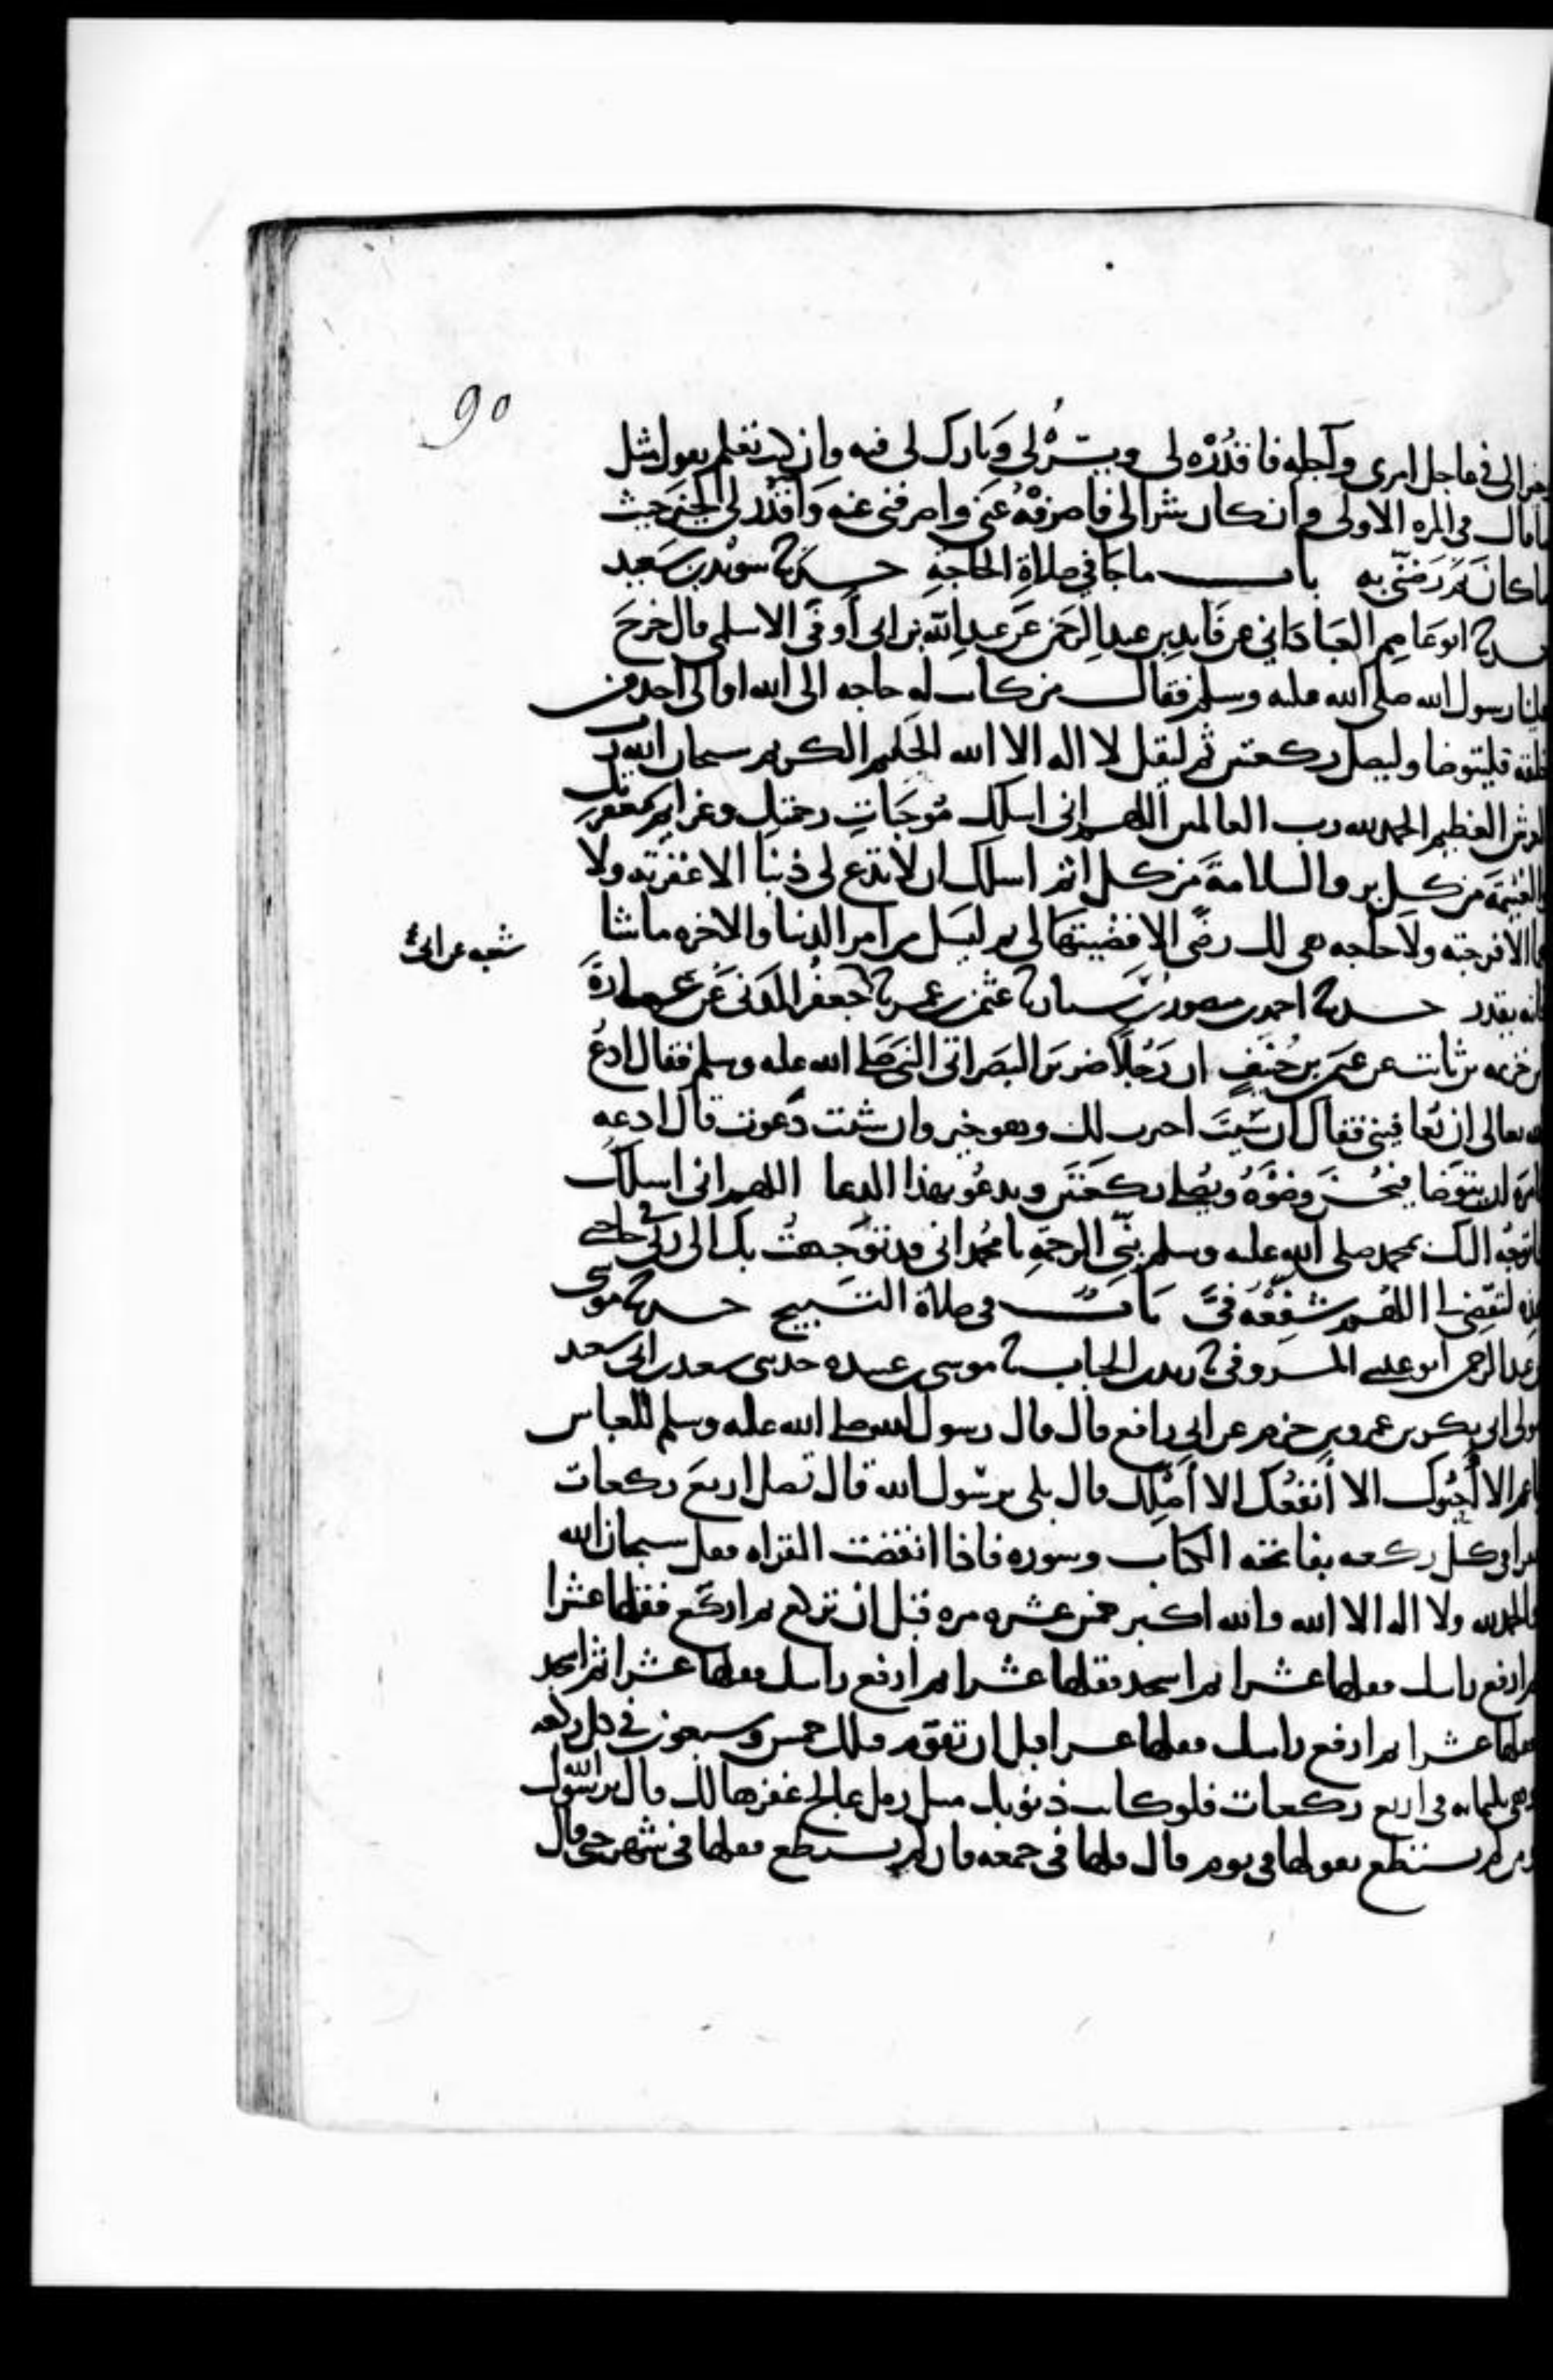 90
خيرا لي في عاجل امري وآجله فاقْدُرْه لي ويَسِّرْهُ لي وَبارك لي فيه وان كنت تعلم يقول مثل
ما قال في المره الاولى وان كان شرا لي فاصرفْهُ عَنّي واصرفني عنه وَاقْدُر لي الخيرَ حيث
ما كانَ ثم رَضّني به باب ما جَا في صلاةِ الحاجَةِ حدثنا سُوَيْد بن سَعيد
حدثنا ابو عَاصِم العَبّادَاني عن فَايدِ بن عبدِ الرحمن عَن عبدِ اللهِ بن ابي أَوفَى الاسلمي قال خرجَ
علينا رسول الله صلى الله عليه وسلم فقال من كانت له حاجه الى الله او الى احد من
خلقه فليتوضا وليصل ركعتين ثم ليقل لا اله الا الله الحَليم الكريم سبحان الله رب
العرش العظيم الحمد لله رب العالمين اللهم اني اسلك مُوجَبَاتِ رحمتك وعزايم مغفرتك
والغنيمَةَ من كل بر والسلامةَ من كل اثم اسلك ان لا تدع لي ذنبا الا غفرته ولا
هما الا فرجته ولا حاجه هي لك رضًى الا قضيتَهَا لي ثم ليَسَل من امر الدنيا والاخره ما شا
شعبه عن ابي
فانه يقدر حدثنا احمد بن منصور بن سيار نا عثمن بن عمر نا جعفر المَدَني عَن عُمارةَ
بن خزيمه بن ثابت عن عثمن بن حُنَيفٍ ان رَجُلا ضريرَ البَصَر اتى النبيَ صَلى الله عليه وسلم فقال ادعُ
الله تعالى ان يُعافِيني فقال ان شيتَ اخرت لك وهو خير وان شئت دَعوت قال ادعه
فامره ان يتَوَضا فيُحسنَ وضوَهُ ويُصلي ركعَتَين ويدعُو بهذا الدعا اللهم اني اسلك
واتوجه اليك بمحمد صلى الله عليه وسلم نبيّ الرحمةِ يا محمد اني قد تَوَجهتُ بك الى ربي في حاجتي
هذه لتقضى اللهم شفِّعْهُ فيَّ بابٌ في صلاة التسبيح حدثنا موسى
بن عبد الرحمن ابو عيسى المسروقي نا زيد بن الحباب نا موسى بن عبيده حدثني سعيد بن ابي سعيد
مولى ابي بكر بن عمرو بن حزم عن ابي رافع قال قال رسول الله صلى الله عليه وسلم للعباس
يا عم الا أحبُوك الا أنفعُك الا أصِلك قال بلى يرسول الله قال تصل اربعَ ركعات
تقرا في كل ركعه بفاتحه الكتاب وسوره فاذا انقضت القراه فقل سبحان الله
والحمد لله ولا اله الا الله والله اكبر خمس عشره مره قبل ان تركع ثم اركع فقلها عشرا
ثم ارفع راسك فقلها عشرا ثم اسجد فقلها عشرا ثم ارفع راسك فقلها عشرا ثم اسجد
فقلها عشرا ثم ارفع راسك فقلها عشرا قبل ان تقوم فتلك خمس وسبعون في كل ركعه
وهي ثلثمائه في اربع ركعات فلو كانت ذنوبك مثل رمل عالج غفرها لك قال يرسول الله
ومن لم يستطع يقولها في يوم قال قلها في جمعه فان لم يستطع فقلها في شهر حتى قال